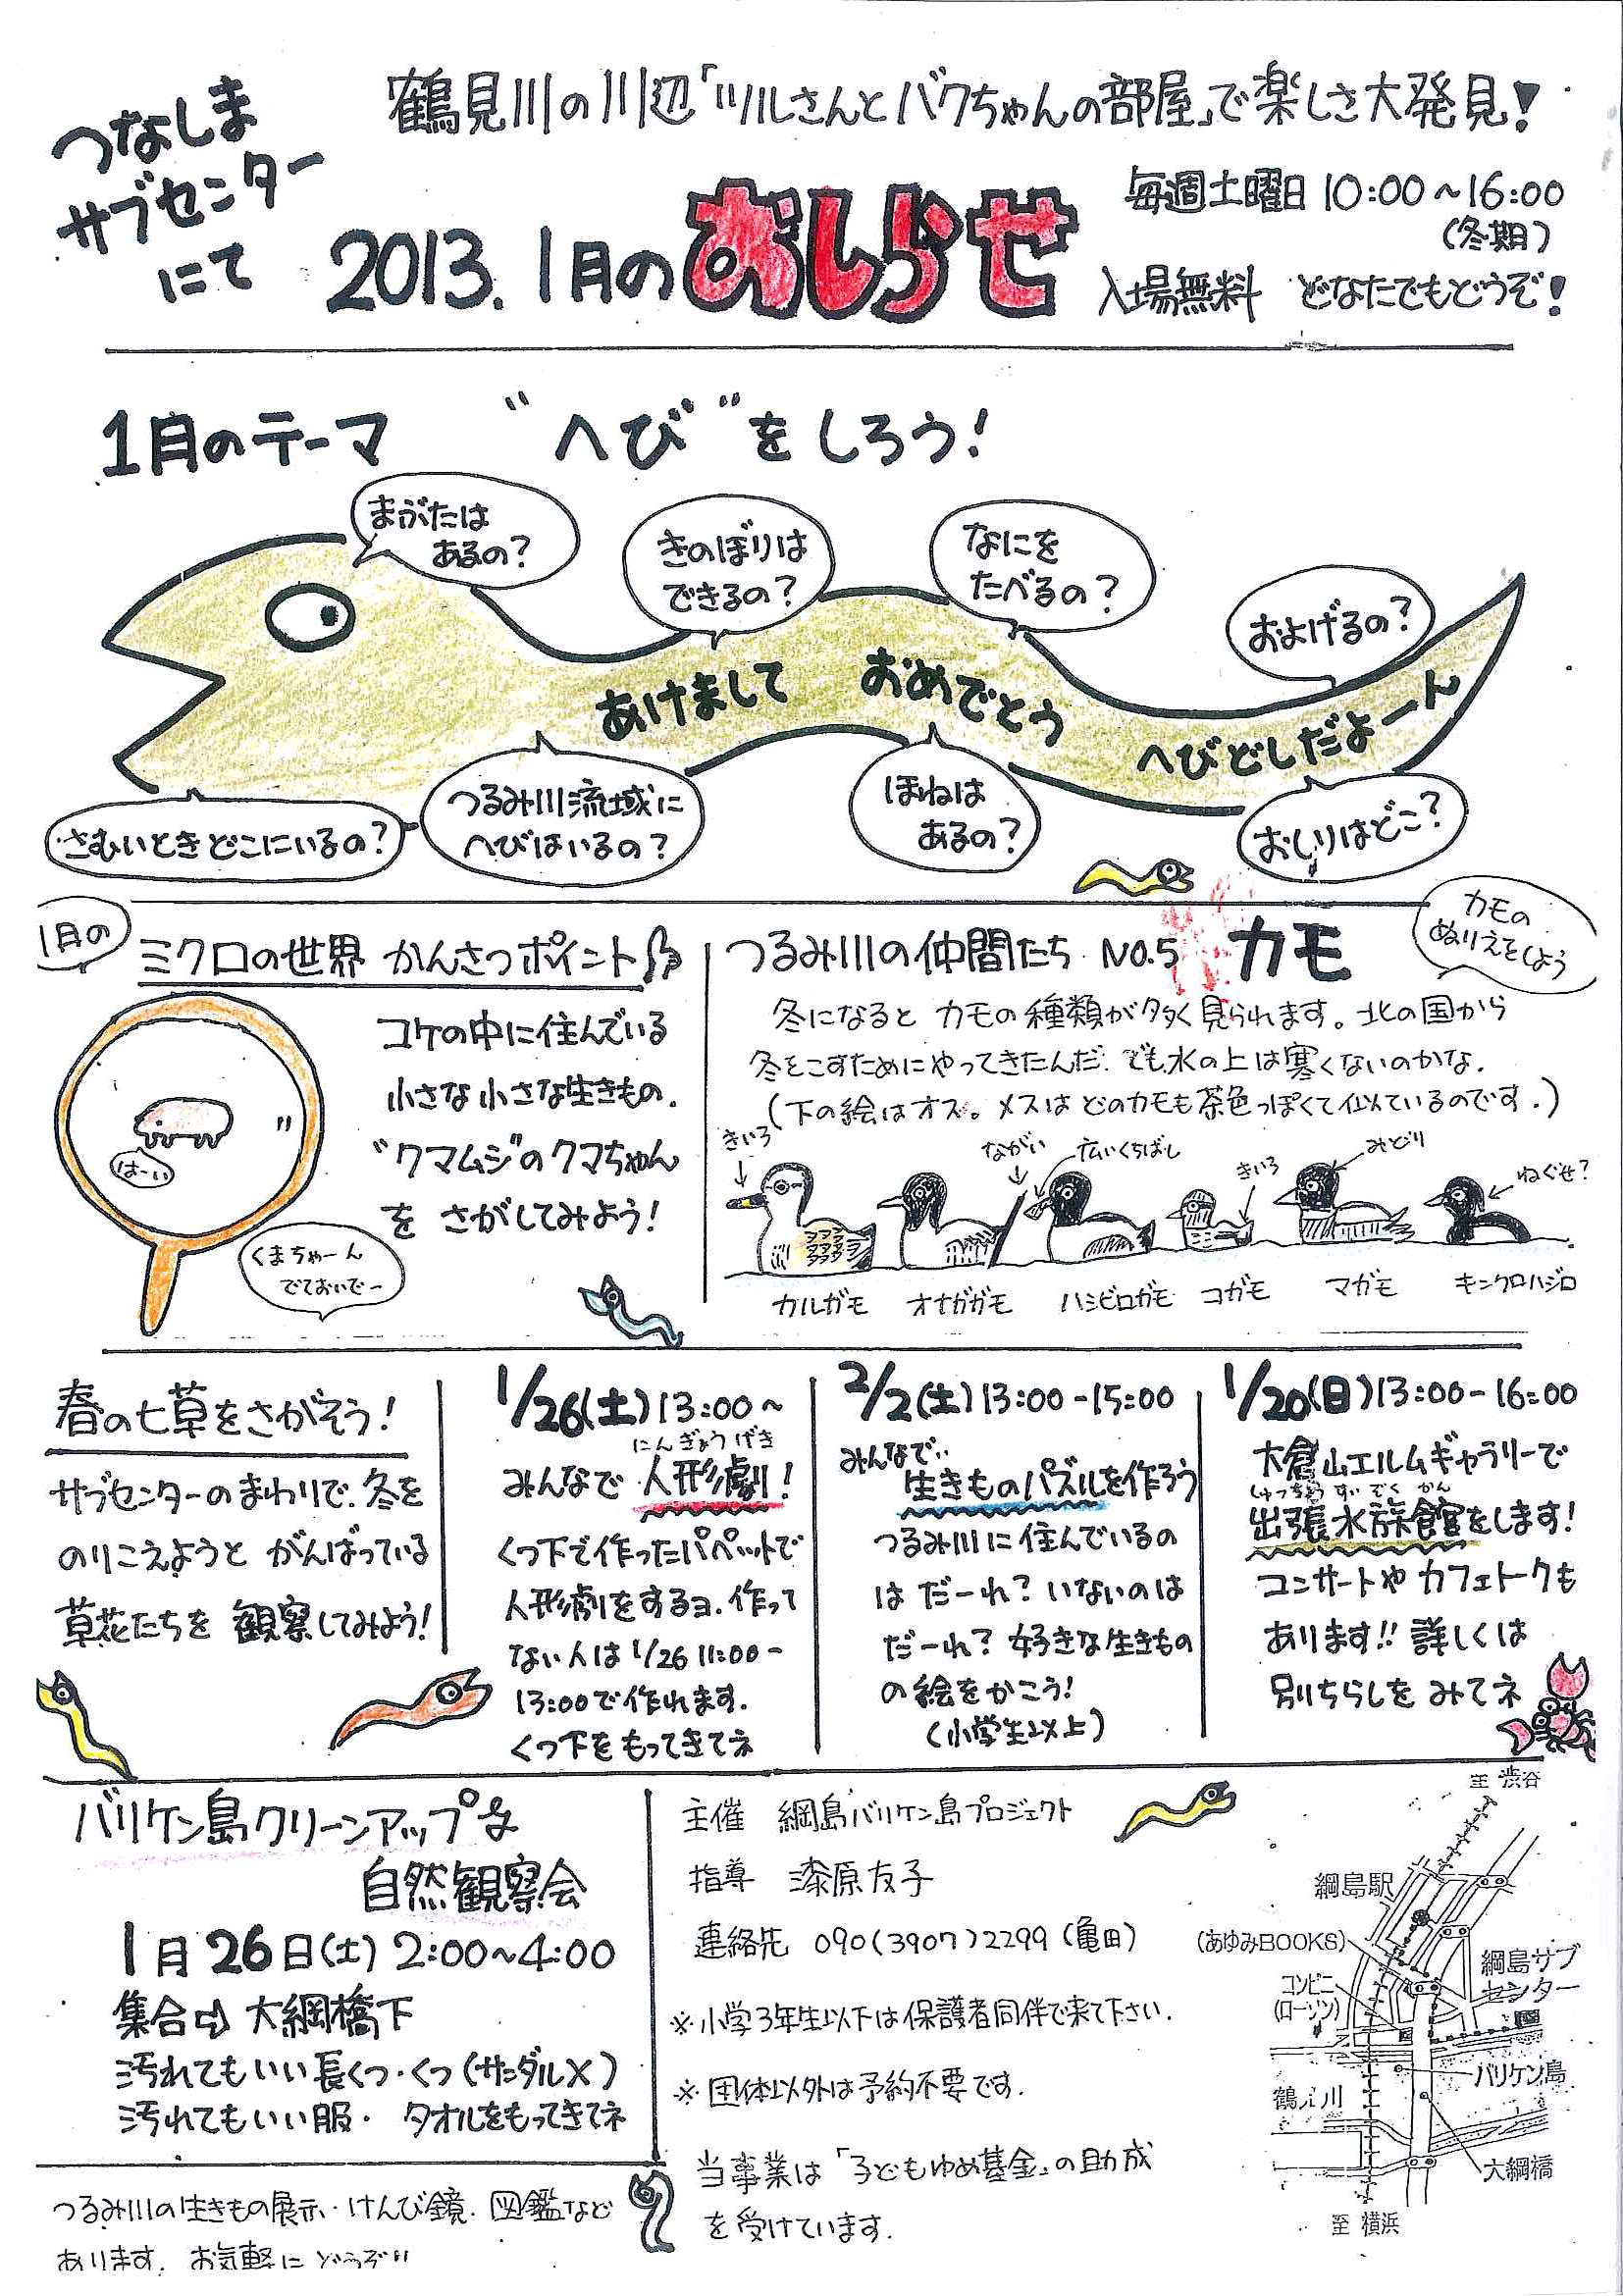 つなしま
サブセンター
にて
鶴見川の川辺「ツルさんとバクちゃんの部屋」で楽しさ大発見!
2013. 1月のおしらせ
毎週土曜日 10:00～16:00
(冬期)
入場無料 どなたでもどうぞ!
1月のテーマ "へび"をしろう!
まぶたは
あるの?
きのぼりは
できるの?
なにを
たべるの?
およげるの?
あけまして おめでとう へびどしだよーん
さむいときどこにいるの?
つるみ川流域に
へびはいるの?
ほねは
あるの?
おしりはどこ?
1月の
ミクロの世界 かんさつポイント
コケの中に住んでいる
小さな小さな生きもの.
"クマムシ"のクマちゃん
を さがしてみよう!
はーい
くまちゃーん
でておいでー
つるみ川の仲間たち NO.5 カモ
カモの
ぬりえをしよう
冬になると カモの種類が多く見られます。北の国から
冬をこすためにやってきたんだ. でも水の上は寒くないのかな.
(下の絵はオス。メスは どのカモも茶色っぽくて似ているのです.)
きいろ
ながい
広いくちばし
きいろ
みどり
ねぐせ?
カルガモ オナガガモ ハシビロガモ コガモ マガモ キンクロハジロ
春の七草をさがそう!
サブセンターのまわりで、冬を
のりこえようと がんばっている
草花たちを 観察してみよう!
1/26(土)13:00～
にんぎょうげき
みんなで 人形劇!
くつ下で作ったパペットで
人形劇をするヨ. 作って
ない人は 1/26 11:00-
13:00で作れます.
くつ下をもってきてネ
2/2(土)13:00-15:00
みんなで..
生きものパズルを作ろう
つるみ川に住んでいるの
は だーれ? いないのは
だーれ? 好きな生きもの
の絵をかこう!
(小学生以上)
1/20(日)13:00-16:00
大倉山エルムギャラリーで
しゅっちょうすいぞくかん
出張水族館をします!
コンサートや カフェトークも
あります!! 詳しくは
別ちらしを みてネ
バリケン島クリーンアップ&
自然観察会
1月26日(土) 2:00～4:00
集合⇨ 大綱橋下
汚れてもいい長くつ・くつ(サンダル×)
汚れてもいい服・ タオルをもってきてネ
つるみ川の生きもの展示・けんび鏡. 図鑑など
あります. お気軽に どうぞ!!
主催 綱島バリケン島プロジェクト
指導 漆原友子
連絡先 090(3907)2299(亀田)
※小学3年生以下は保護者同伴で来て下さい.
※団体以外は予約不要です.
当事業は「子どもゆめ基金」の助成
を受けています.
至 渋谷
綱島駅
(あゆみBOOKS)
綱島サブ
センター
コンビニ
(ローソン)
バリケン島
鶴見川
大綱橋
至 横浜